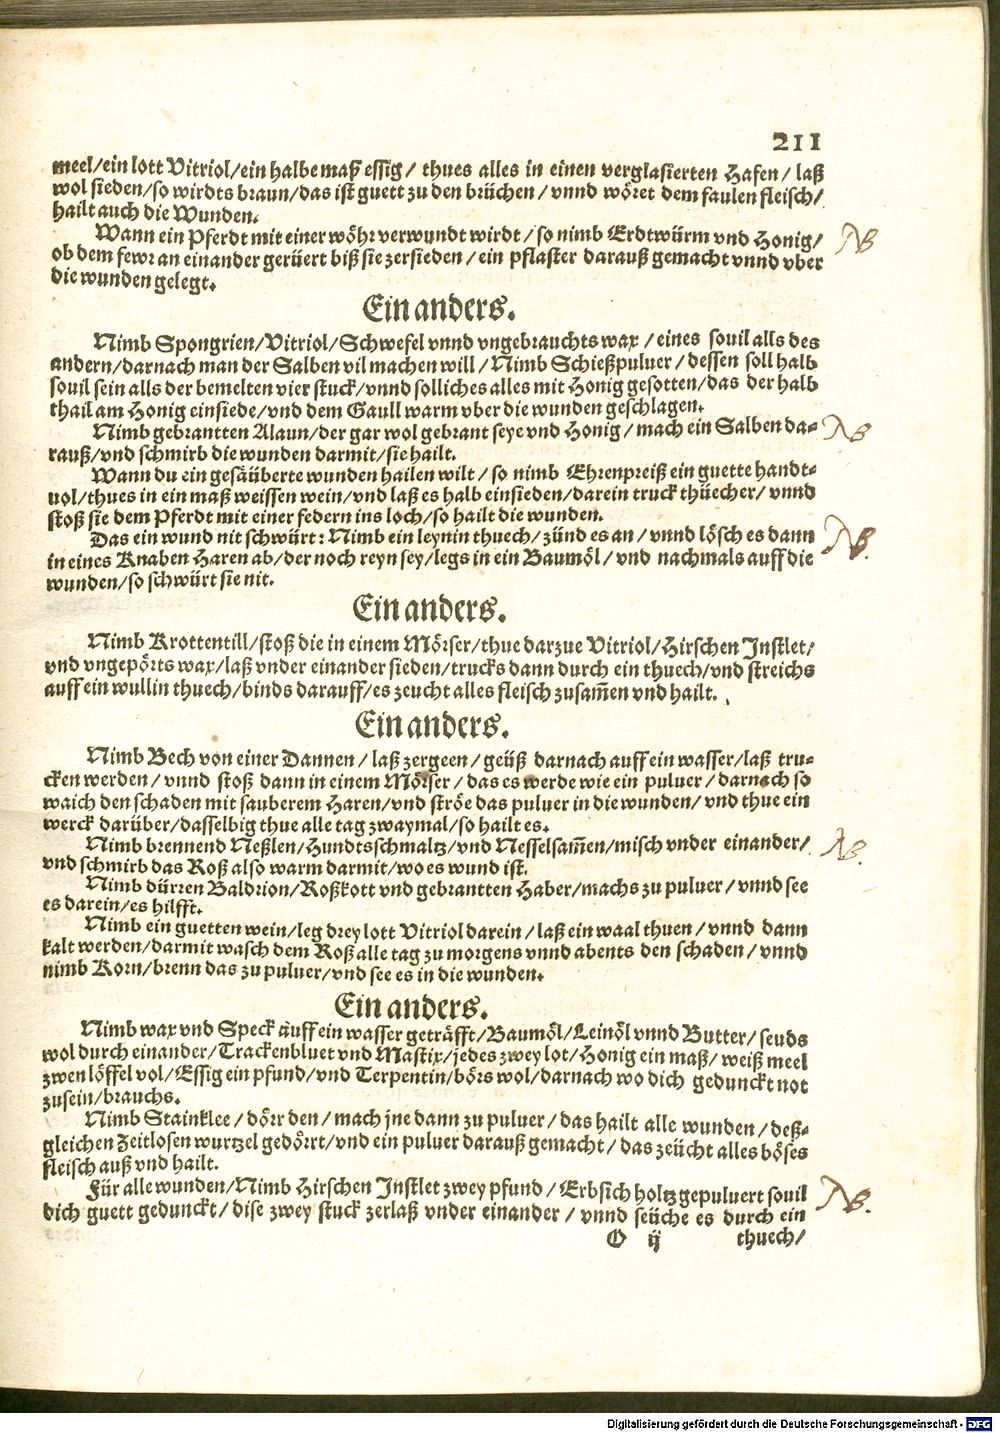 211
meel/ein lott Vitriol/ein halbe maß essig/ thues alles in einen verglasierten Hafen/ laß
wol sieden/so wirdts braun/das ist guett zu den brüchen/ vnnd wöret dem faulen fleisch/
hailt auch die Wunden.
Wann ein Pferdt mit einer wöhr verwundt wirdt/so nimb Erdtwürm vnd Honig/ NB
ob dem fewr an einander gerüert biß sie zersieden/ein pflaster darauß gemacht vnnd vber
die wunden gelegt.
Ein anders.
Nimb Spongrien/Vitriol/Schwefel vnnd vngebrauchts wax/eines souil alls des
andern/darnach man der Salben vil machen will/Nimb Schießpuluer/dessen soll halb
souil sein alls der bemelten vier stuck/vnnd solliches alles mit Honig gesotten/das der halb
thail am Honig einsiede/vnd dem Gaull warm vber die wunden geschlagen.
Nimb gebrantten Alaun/der gar wol gebrant seye vnd Honig/mach ein Salben da- NB
rauß/vnd schmirb die wunden darmit/sie hailt.
Wann du ein gesäüberte wunden hailen wilt/so nimb Ehrenpreiß ein guette handt-
uol/thues in ein maß weissen wein/vnd laß es halb einsieden/darein truck thüecher/vnnd
stoß sie dem Pferdt mit einer federn ins loch/so hailt die wunden.
Das ein wund nit schwürt: Nimb ein leynin thuech/zünd es an/vnnd lösch es dann NB.
in eines Knaben Haren ab/der noch reyn sey/legs in ein Baumöl/vnd nachmals auff die
wunden/so schwürt sie nit.
Ein anders.
Nimb Krottentill/stoß die in einem Mörser/thue darzue Vitriol/Hirschen Instlet/
vnd vngepörts wax/laß vnder einander sieden/trucks dann durch ein thuech/vnd streichs
auff ein wullin thuech/binds darauff/es zeucht alles fleisch zusam̄en vnd hailt.
Ein anders.
Nimb Bech von einer Dannen/laß zergeen/geüß darnach auff ein wasser/laß tru-
cken werden/vnnd stoß dann in einem Mörser/das es werde wie ein puluer/darnach so
waich den schaden mit sauberem Haren/vnd ströe das puluer in die wunden/vnd thue ein
werck darüber/dasselbig thue alle tag zwaymal/so hailt es.
Nimb brennend Neßlen/Hundtsschmaltz/vnd Nesselsam̄en/misch vnder einander/ NB.
vnd schmirb das Roß also warm darmit/wo es wund ist.
Nimb dürren Baldrion/Roßkott vnd gebrantten Haber/machs zu puluer/vnnd see
es darein/es hilfft.
Nimb ein guetten wein/leg drey lott Vitriol darein/laß ein waal thuen/vnnd dann
kalt werden/darmit wasch dem Roß alle tag zu morgens vnnd abents den schaden/vnnd
nimb Korn/brenn das zu puluer/vnd see es in die wunden.
Ein anders.
Nimb wax vnd Speck auff ein wasser geträfft/Baumöl/Leinöl vnnd Butter/seuds
wol durch einander/Trackenbluet vnd Mastix/jedes zwey lot/Honig ein maß/weiß meel
zwen löffel vol/Essig ein pfund/vnd Terpentin/börs wol/darnach wo dich gedunckt not
zusein/brauchs.
Nimb Stainklee/dörr den/mach jne dann zu puluer/das hailt alle wunden/deß-
gleichen Zeitlosen wurtzel gedörrt/vnd ein puluer darauß gemacht/das zeücht alles böses
fleisch auß vnd hailt.
Für alle wunden/Nimb Hirschen Instlet zwey pfund/Erbsich holtz gepuluert souil NB.
dich guett gedunckt/dise zwey stuck zerlaß vnder einander/vnnd seüche es durch ein
O ij thuech/
Digitalisierung gefördert durch die Deutsche Forschungsgemeinschaft - DFG